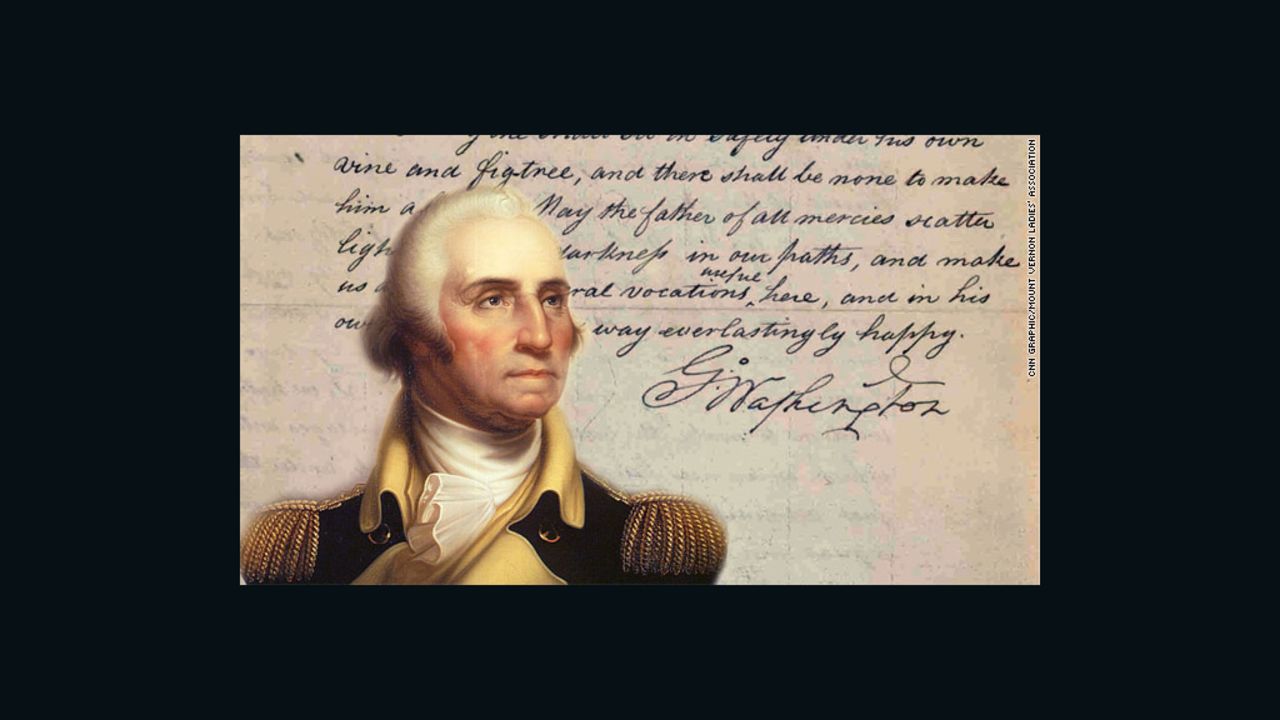 shall sit in safety under his own
vine and figtree, and there shall be none to make
him a May the father of all mercies scatter
ligh darkness in our paths, and make
useful
us ral vocations, here, and in his
ow way everlastingly happy.
G. Washington
CNN GRAPHIC/MOUNT VERNON LADIES' ASSOCIATION